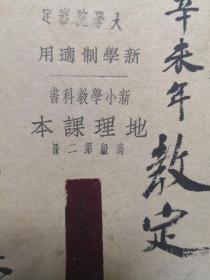 大學院審定
新學制適用
新小學教科書
地理課本
高級第二冊
辛未年教定